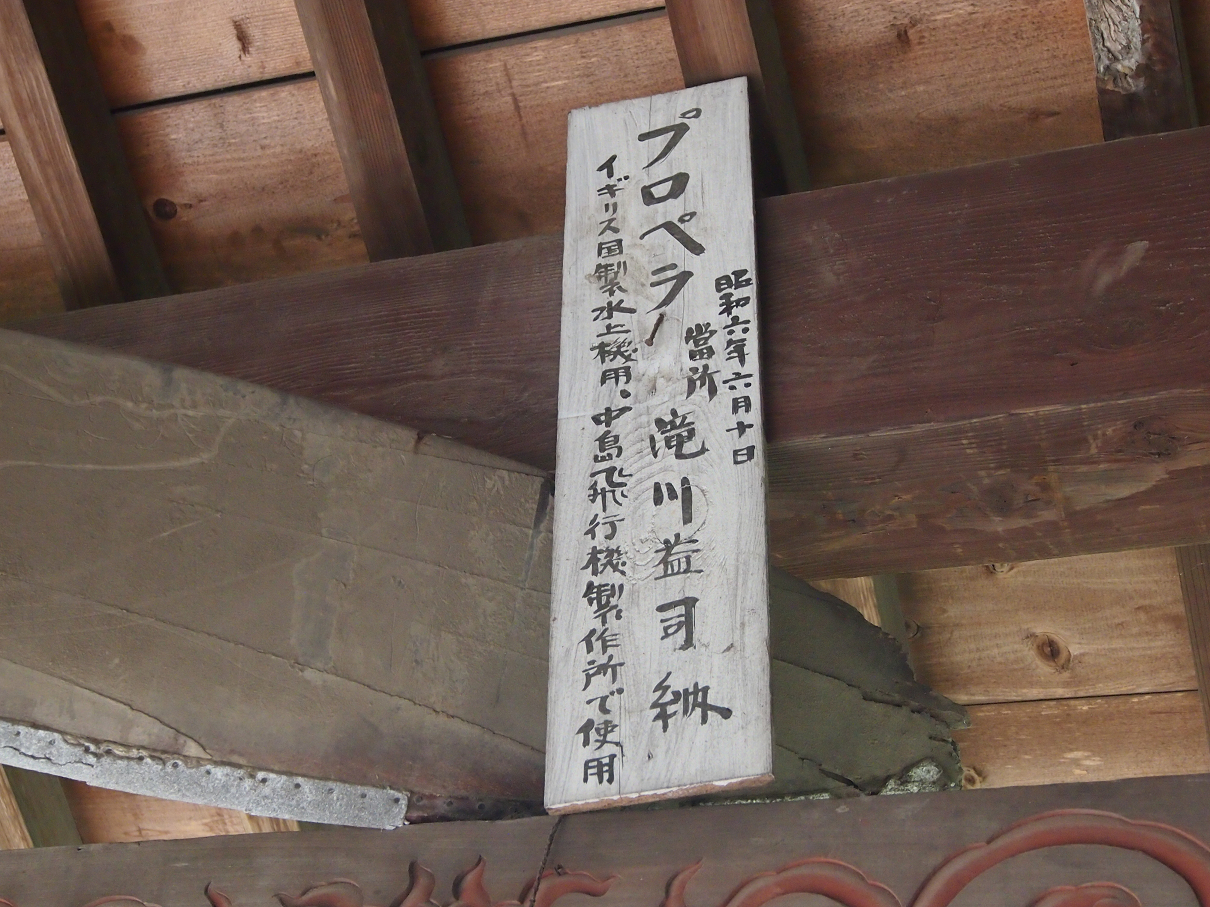 昭和六年六月十日
プロペラー
當所 滝川益司納
イギリス国製水上機用、中島飛行機製作所で使用